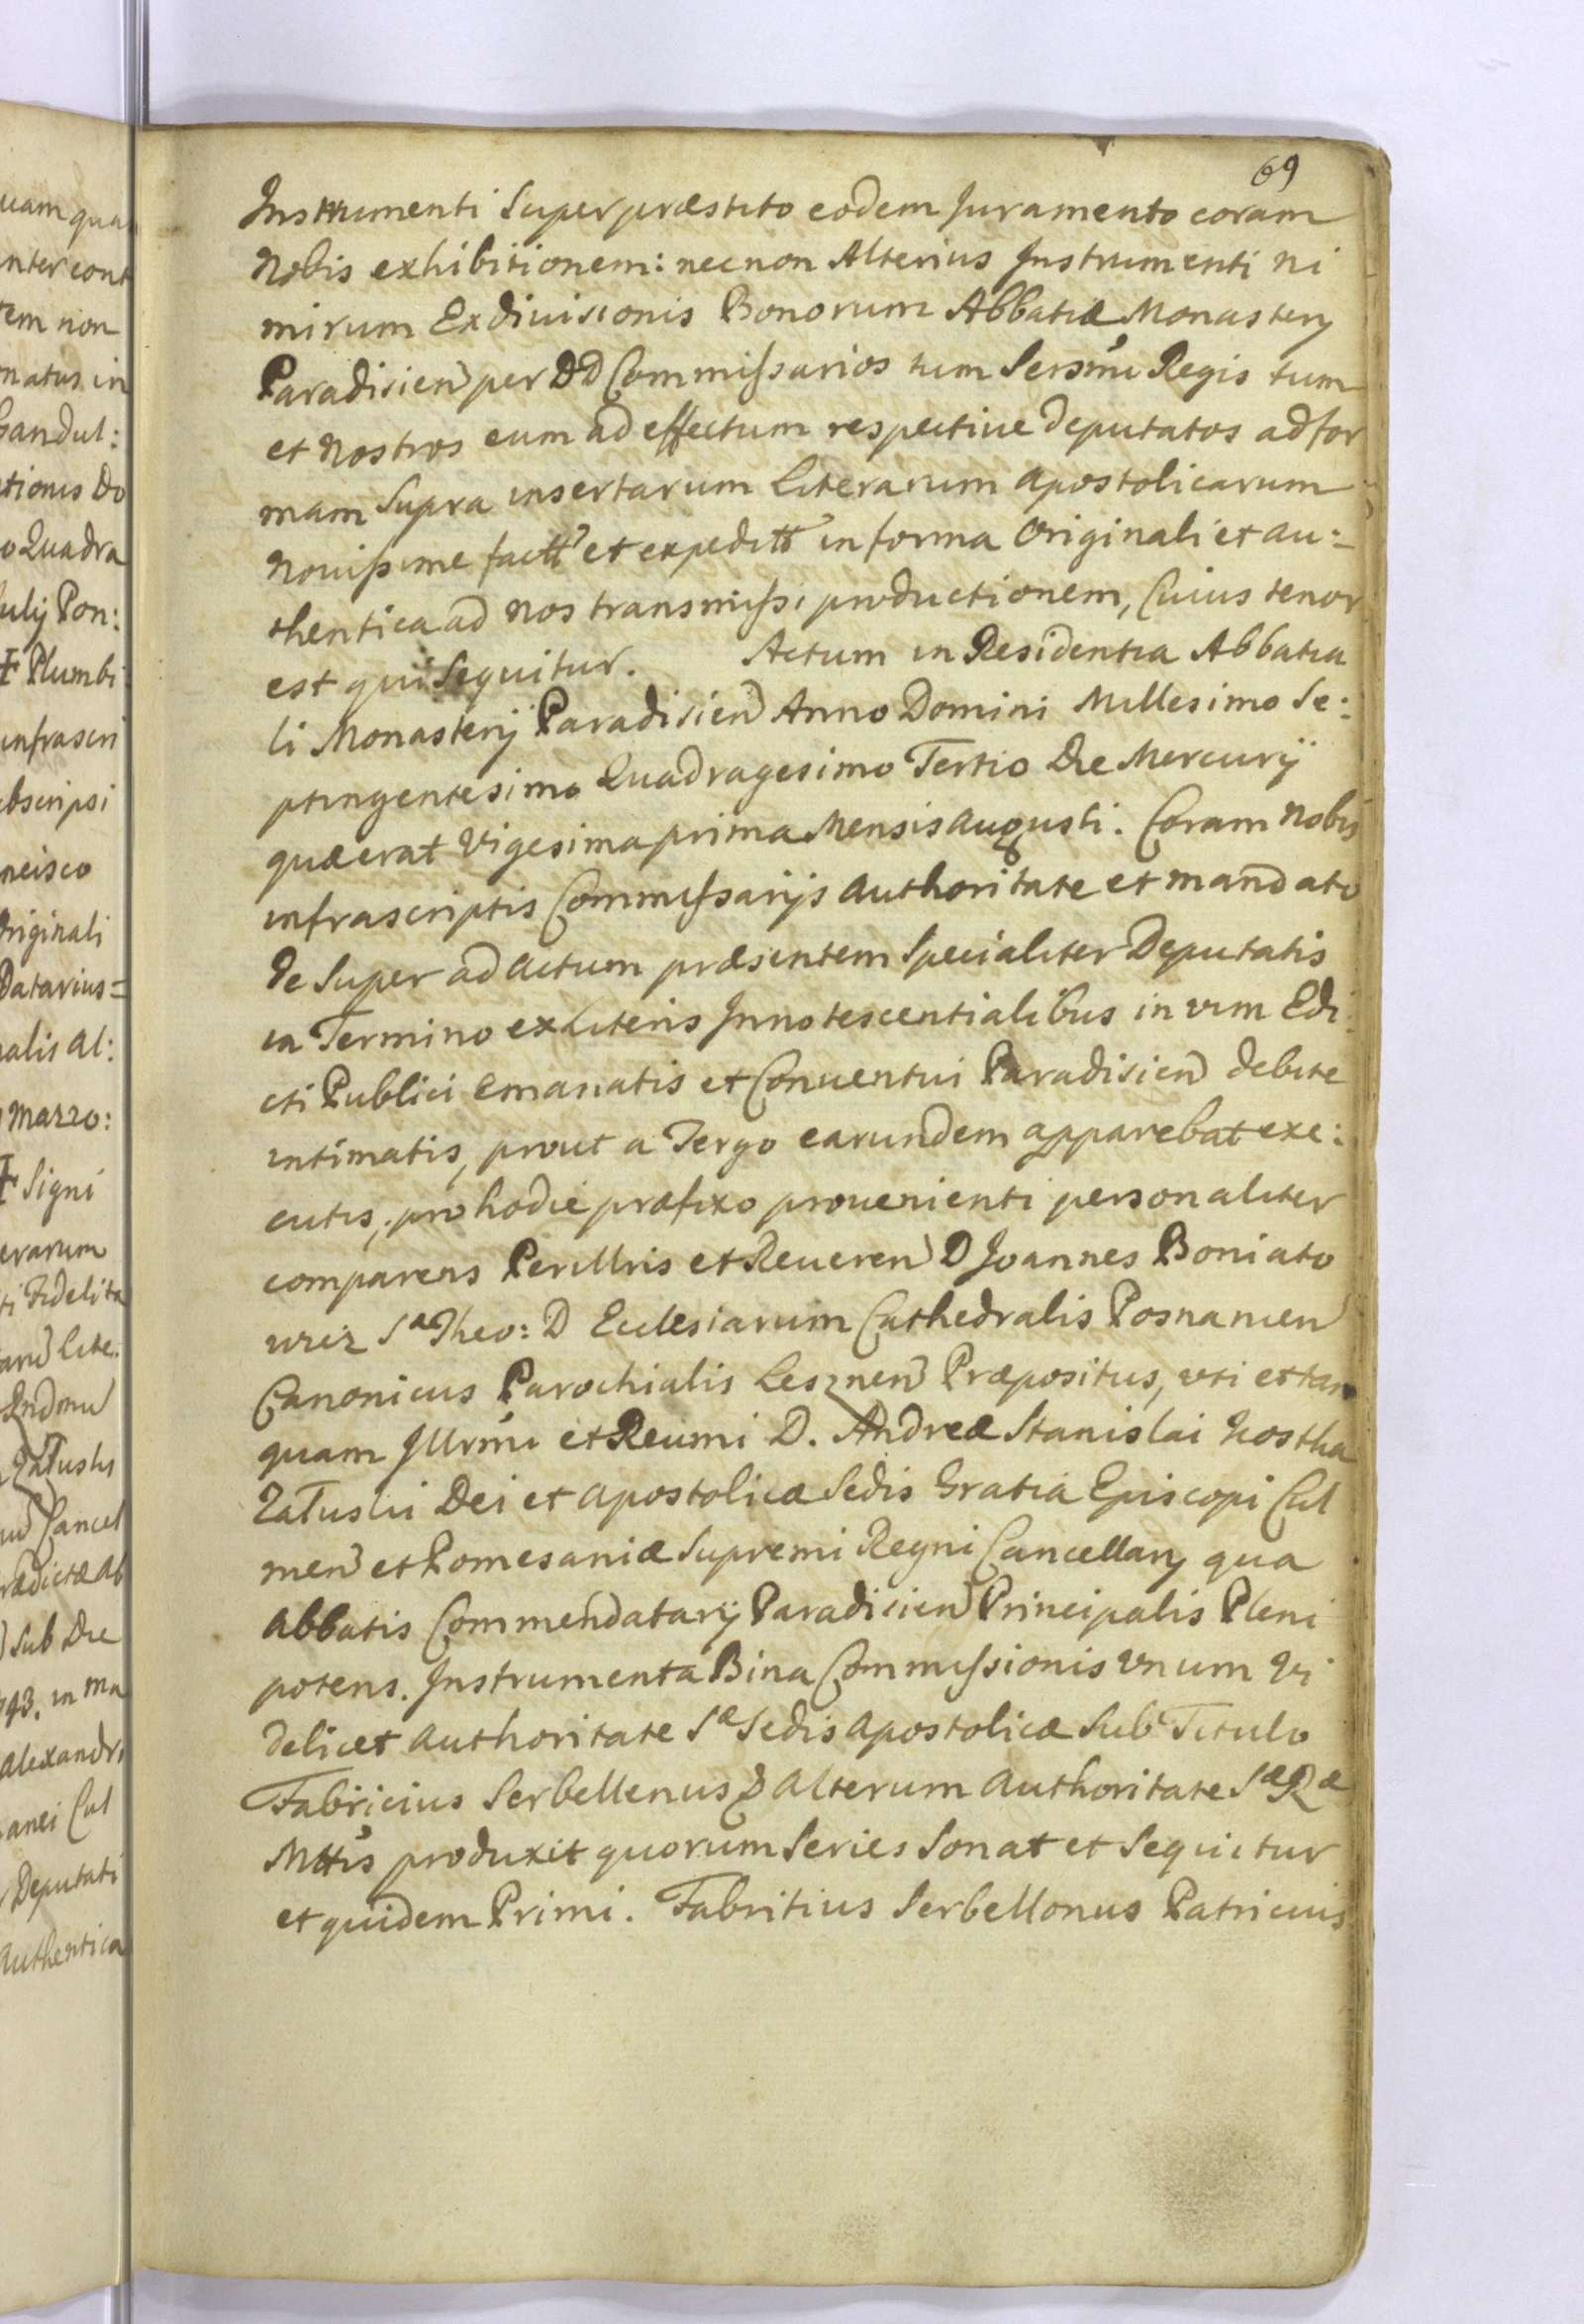 69
Instrumenti Super præstito eodem Juramento coram
Nobis exhibitionem: necnon Alterius Instrumenti ni
mirum Exdiuisionis Bonorum Abbatiæ Monastery
Paradisien per DD Commissarios tum Sersmi Regis tum
et Nostros eum ad effectum respectiue deputatos ad for
mam Supra insertarum Literarum Apostolicarum
Nouissime factt et expeditt in forma Originali et au:
thentica ad Nos transmissi productionem, Cuius tenor
est qui Sequitur. Actum in Residentia Abbatia
li Monasterij Paradisien Anno Domini Millesimo Se:
ptingentesimo Quadragesimo Tertio Die Mercurij
quæ erat Vigesima prima Mensis Augusti. Coram Nobis
infrascriptis Commissarijs Authoritate et mandato
de Super ad Actum præsentem Specialiter Deputatis
in Termino ex Literis Innotescentialibus in vim Edi:
cti Publici emanatis et Conuentui Paradisien debite
intimatis, prout a Tergo earundem apparebat exe:
cutis, pro hodie præfixo prouenienti personaliter
comparens Perillris et Reueren D Joannes Boniato
wicz Sa Theo: D Ecclesiarum Cathedralis Posnanien
Canonicus Parochialis Lesznen Præpositus, uti et tan
quam Illrmi et Reuımi D. Andreæ Stanislai Kostka
Załuski Dei et Apostolicæ Sedis Gratia Episcopi Cul
men et Pomesaniæ Supremi Regni Cancellary qua
Abbatis Commendatarij Paradisien Principalis Pleni
potens. Instrumenta Bina Commissionis Vnum Vi
delicet Authoritate Sæ Sedis Apostolicæ Sub Titulo
Fabricius Serbellenus & Alterum Authoritate Sæ Ræ
Mttis produxit quorum Series Sonat et Sequitur
et quidem Primi. Fabritius Serbellonus Patricius